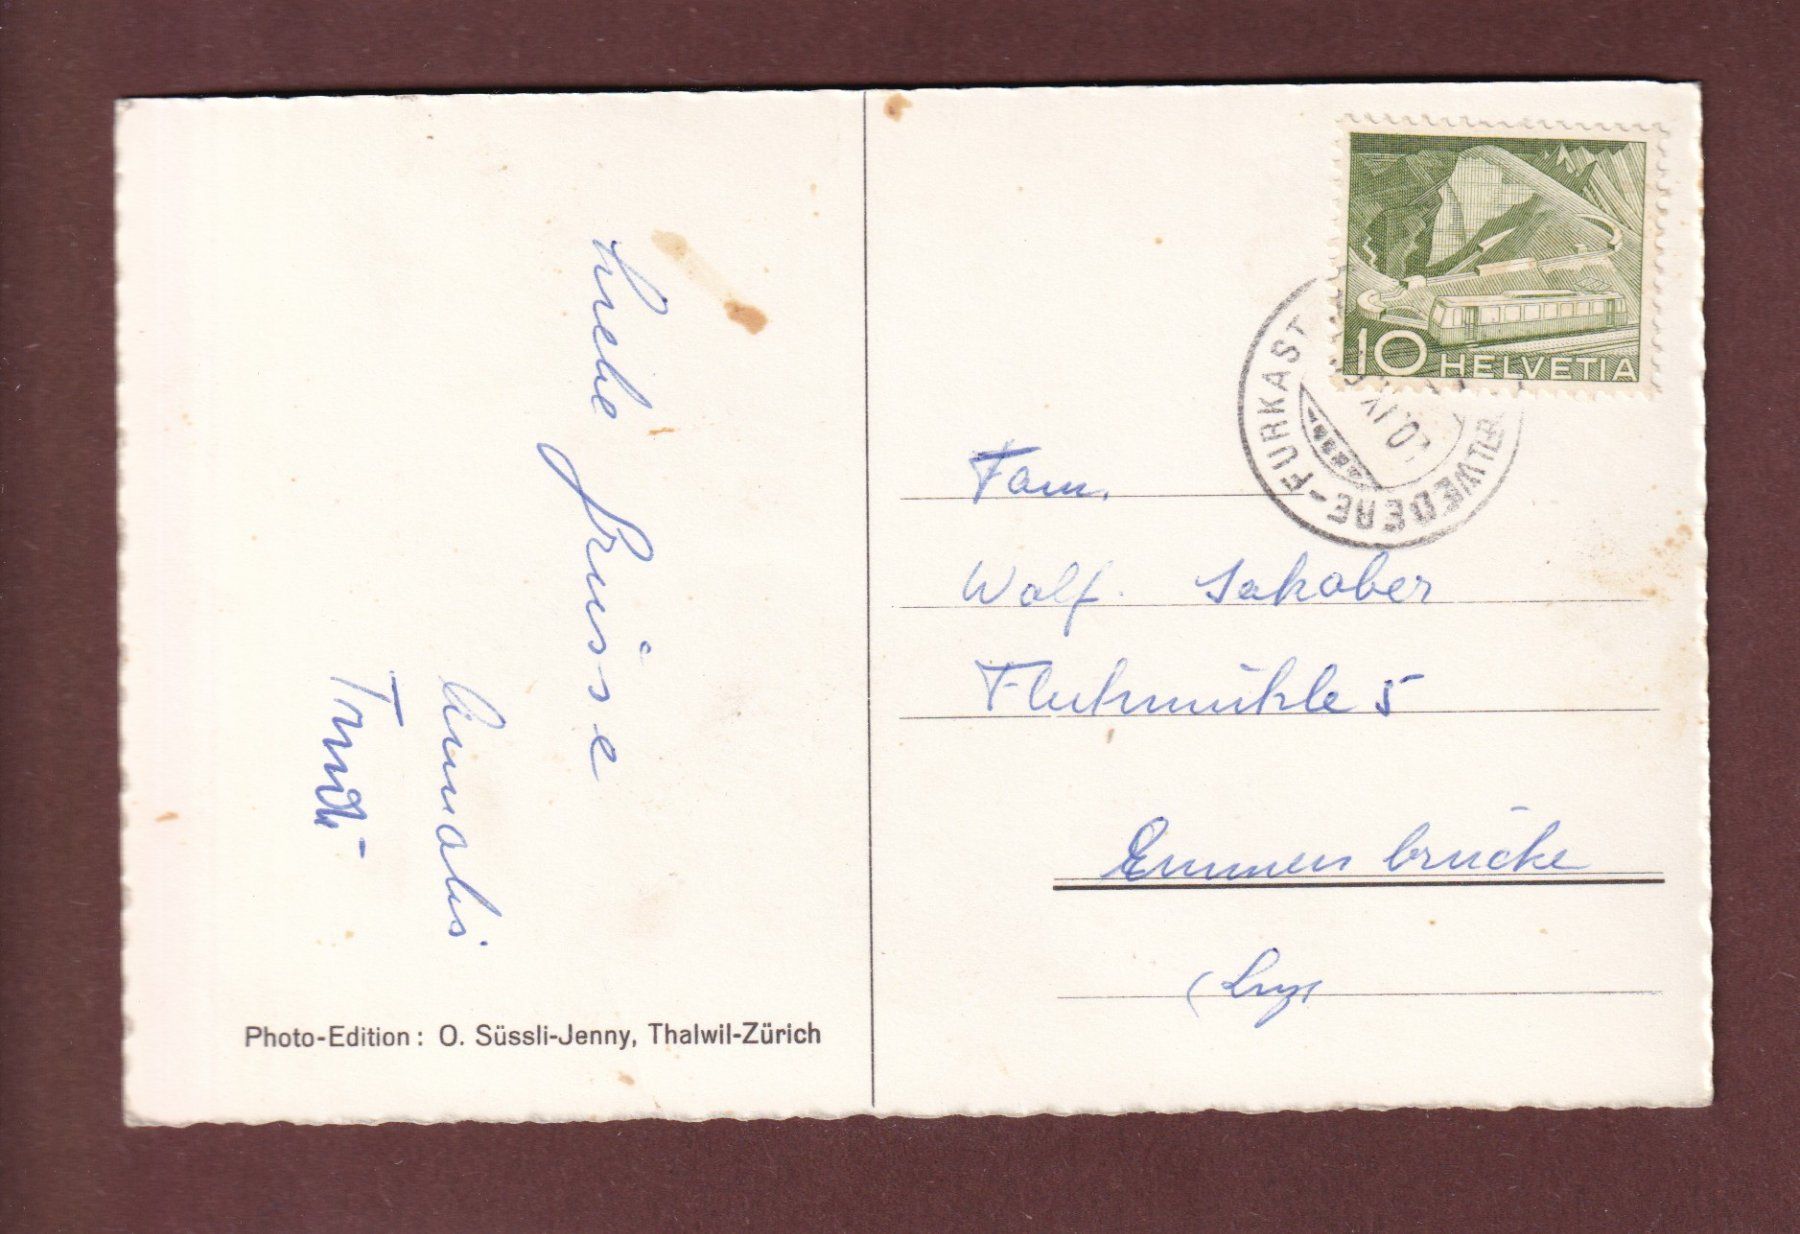 liebe Grüsse
Annali
Trudi
Photo-Edition: O. Süssli-Jenny, Thalwil-Zürich
10 HELVETIA
BELVEDERE-FURKAST
Fam.
Wolf. Jakober
Fluhmühle 5
Emmenbrücke
(Luz.